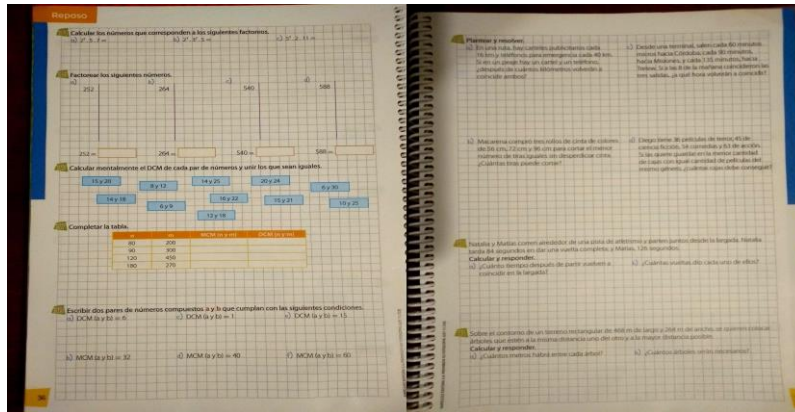 Repaso
Calcular los números que corresponden a los siguientes factoreos.
Factorear los siguientes números.
a)
b)
c)
d)
252
264
540
588
252 =
264 =
540 =
588 =
Calcular mentalmente el DCM de cada par de números y unir los que sean iguales.
15 y 20
8 y 12
14 y 25
20 y 24
6 y 9
16 y 22
15 y 21
10 y 25
12 y 18
Completar la tabla.
n m MCM (n y m) DCM (n y m)
80 200
90 300
120 450
180 270
Escribir dos pares de números compuestos a y b que cumplan con las siguientes condiciones.
a) DCM (a y b) = 6
c) DCM (a y b) = 1
e) DCM (a y b) = 15
b) MCM (a y b) = 32
d) MCM (a y b) = 40
f) MCM (a y b) = 60
36
Plantear y resolver.
a) En una ruta, hay carteles publicitarios cada
16 km y teléfonos para emergencia cada 40 km.
Si en un paraje hay un cartel y un teléfono,
¿después de cuántos kilómetros volverán a
coincidir ambos?
c) Desde una terminal, salen cada 60 minutos
micros hacia Córdoba; cada 90 minutos,
hacia Misiones, y cada 135 minutos, hacia
Si a las 8 de la mañana coincidieron las
tres salidas, ¿a qué hora volverán a coincidir?
b) Macarena compró tres rollos de cinta de colores
de 84 cm, 72 cm y 96 cm para cortar el menor
número de tiras iguales sin desperdiciar cinta.
¿Cuántas tiras puede cortar?
d) Diego tiene 36 películas de terror, 45 de
ciencia ficción, 54 comedias y 63 de acción.
Si las quiere guardar en la menor cantidad
de cajas con igual cantidad de películas del
mismo género, ¿cuántas cajas debe conseguir?
Natalia y Matías corren alrededor de una pista de atletismo y parten juntos desde la largada. Natalia
tarda 84 segundos en dar una vuelta completa, y Matías, 126 segundos.
Calcular y responder.
a) ¿Cuánto tiempo después de partir vuelven a
coincidir en la largada?
b) ¿Cuántas vueltas dio cada uno de ellos?
Sobre el contorno de un terreno rectangular de de largo y de ancho, se quieren colocar
árboles que estén a la misma distancia uno del otro y a la mayor distancia posible.
Calcular y responder.
a) ¿Cuántos metros habrá entre cada árbol?
b) ¿Cuántos árboles serán necesarios?